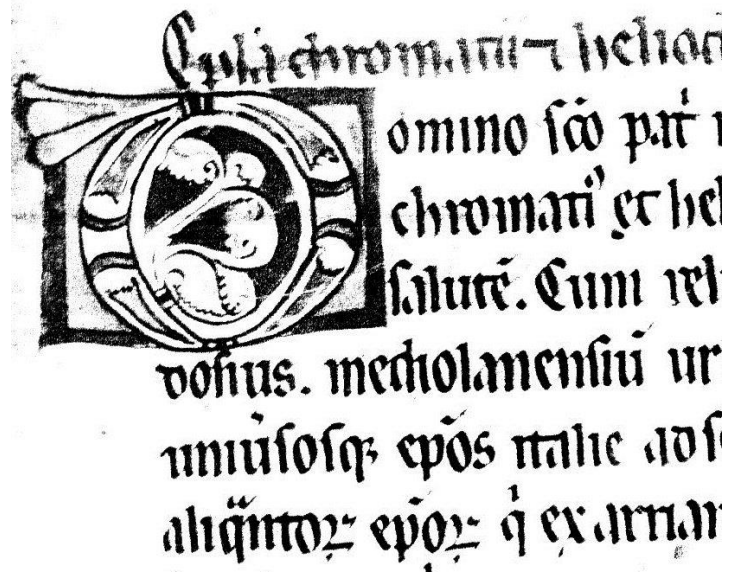 Epła chromatii ⁊ heliod
Domino sc̄o pat̄
chromati᾽ et hel
salutē. Cum rel
dosius. mediolanensiū ur
uniūsosq; ep̄os italie ad s
aliq̄ntoꝝ ep̄oꝝ q̇ ex arrian